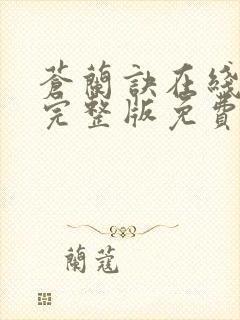 蒼蘭訣在綫
完整版免費
蘭蔻